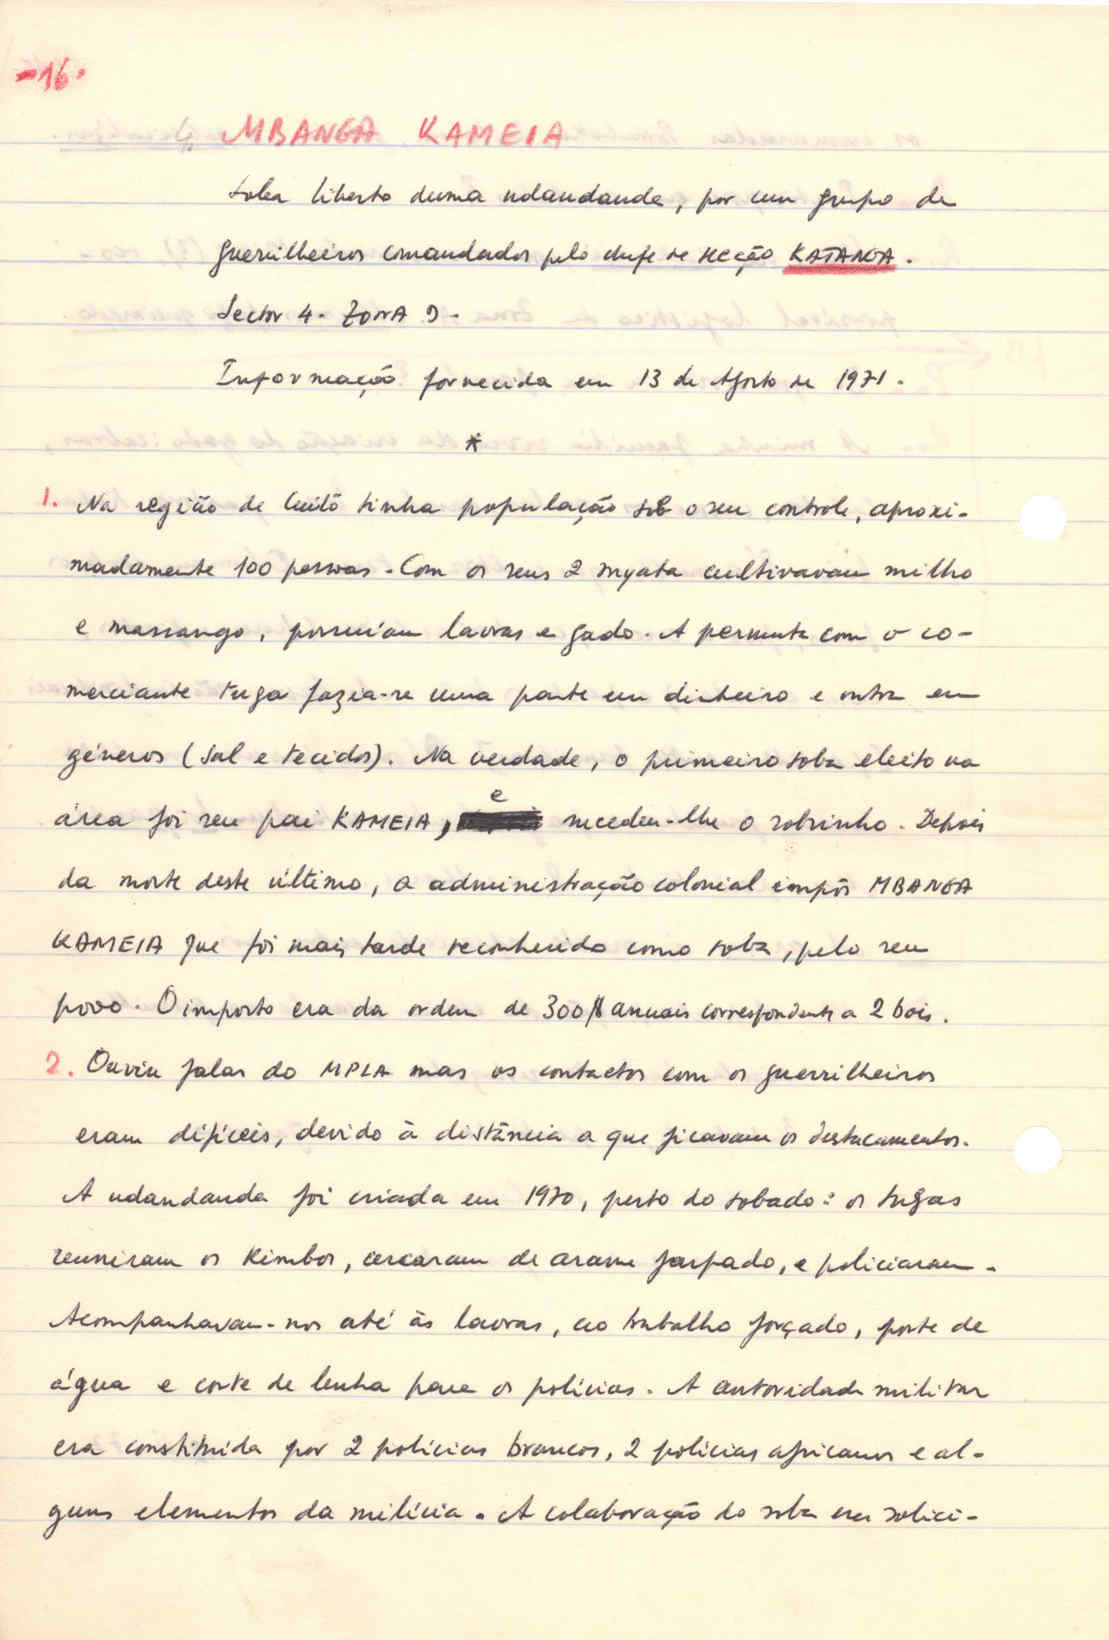 -16-
4. MBANGA KAMEIA
soba liberto duma ndandanda, por um grupo de
guerrilheiros comandados pelo chefe de secção KATANGA.
Sector 4. ZONA D.
Informação fornecida em 13 de Agosto de 1971.
*
1. Na região de Cuito tinha população sob o seu controle, aproxi-
madamente 100 pessoas. Com os seus 2 myata cultivavam milho
e massango, possuiam lavras e gado. A permuta com o co-
merciante tuga fazia-se uma parte em dinheiro e outra em
géneros (sal e tecidos). Na verdade, o primeiro soba eleito na
área foi seu pai KAMEIA, e sucedeu-lhe o sobrinho. Depois
da morte deste último, a administração colonial impôs MBANGA
KAMEIA que foi mais tarde reconhecido como soba, pelo seu
povo. O imposto era da ordem de 300$ anuais correspondente a 2 bois.
2. Ouviu falar do MPLA mas os contactos com os guerrilheiros
eram difíceis, devido à distância a que ficavam os destacamentos.
A ndandanda foi criada em 1970, perto do sobado: os tugas
reuniram os kimbos, cercaram de arame farpado, e policiaram.
Acompanhavam-nos até às lavras, ao trabalho forçado, porte de
água e corte de lenha para os polícias. A autoridade militar
era constituida por 2 polícias brancos, 2 polícias africanos e al-
guns elementos da milícia. A colaboração do soba era solici-